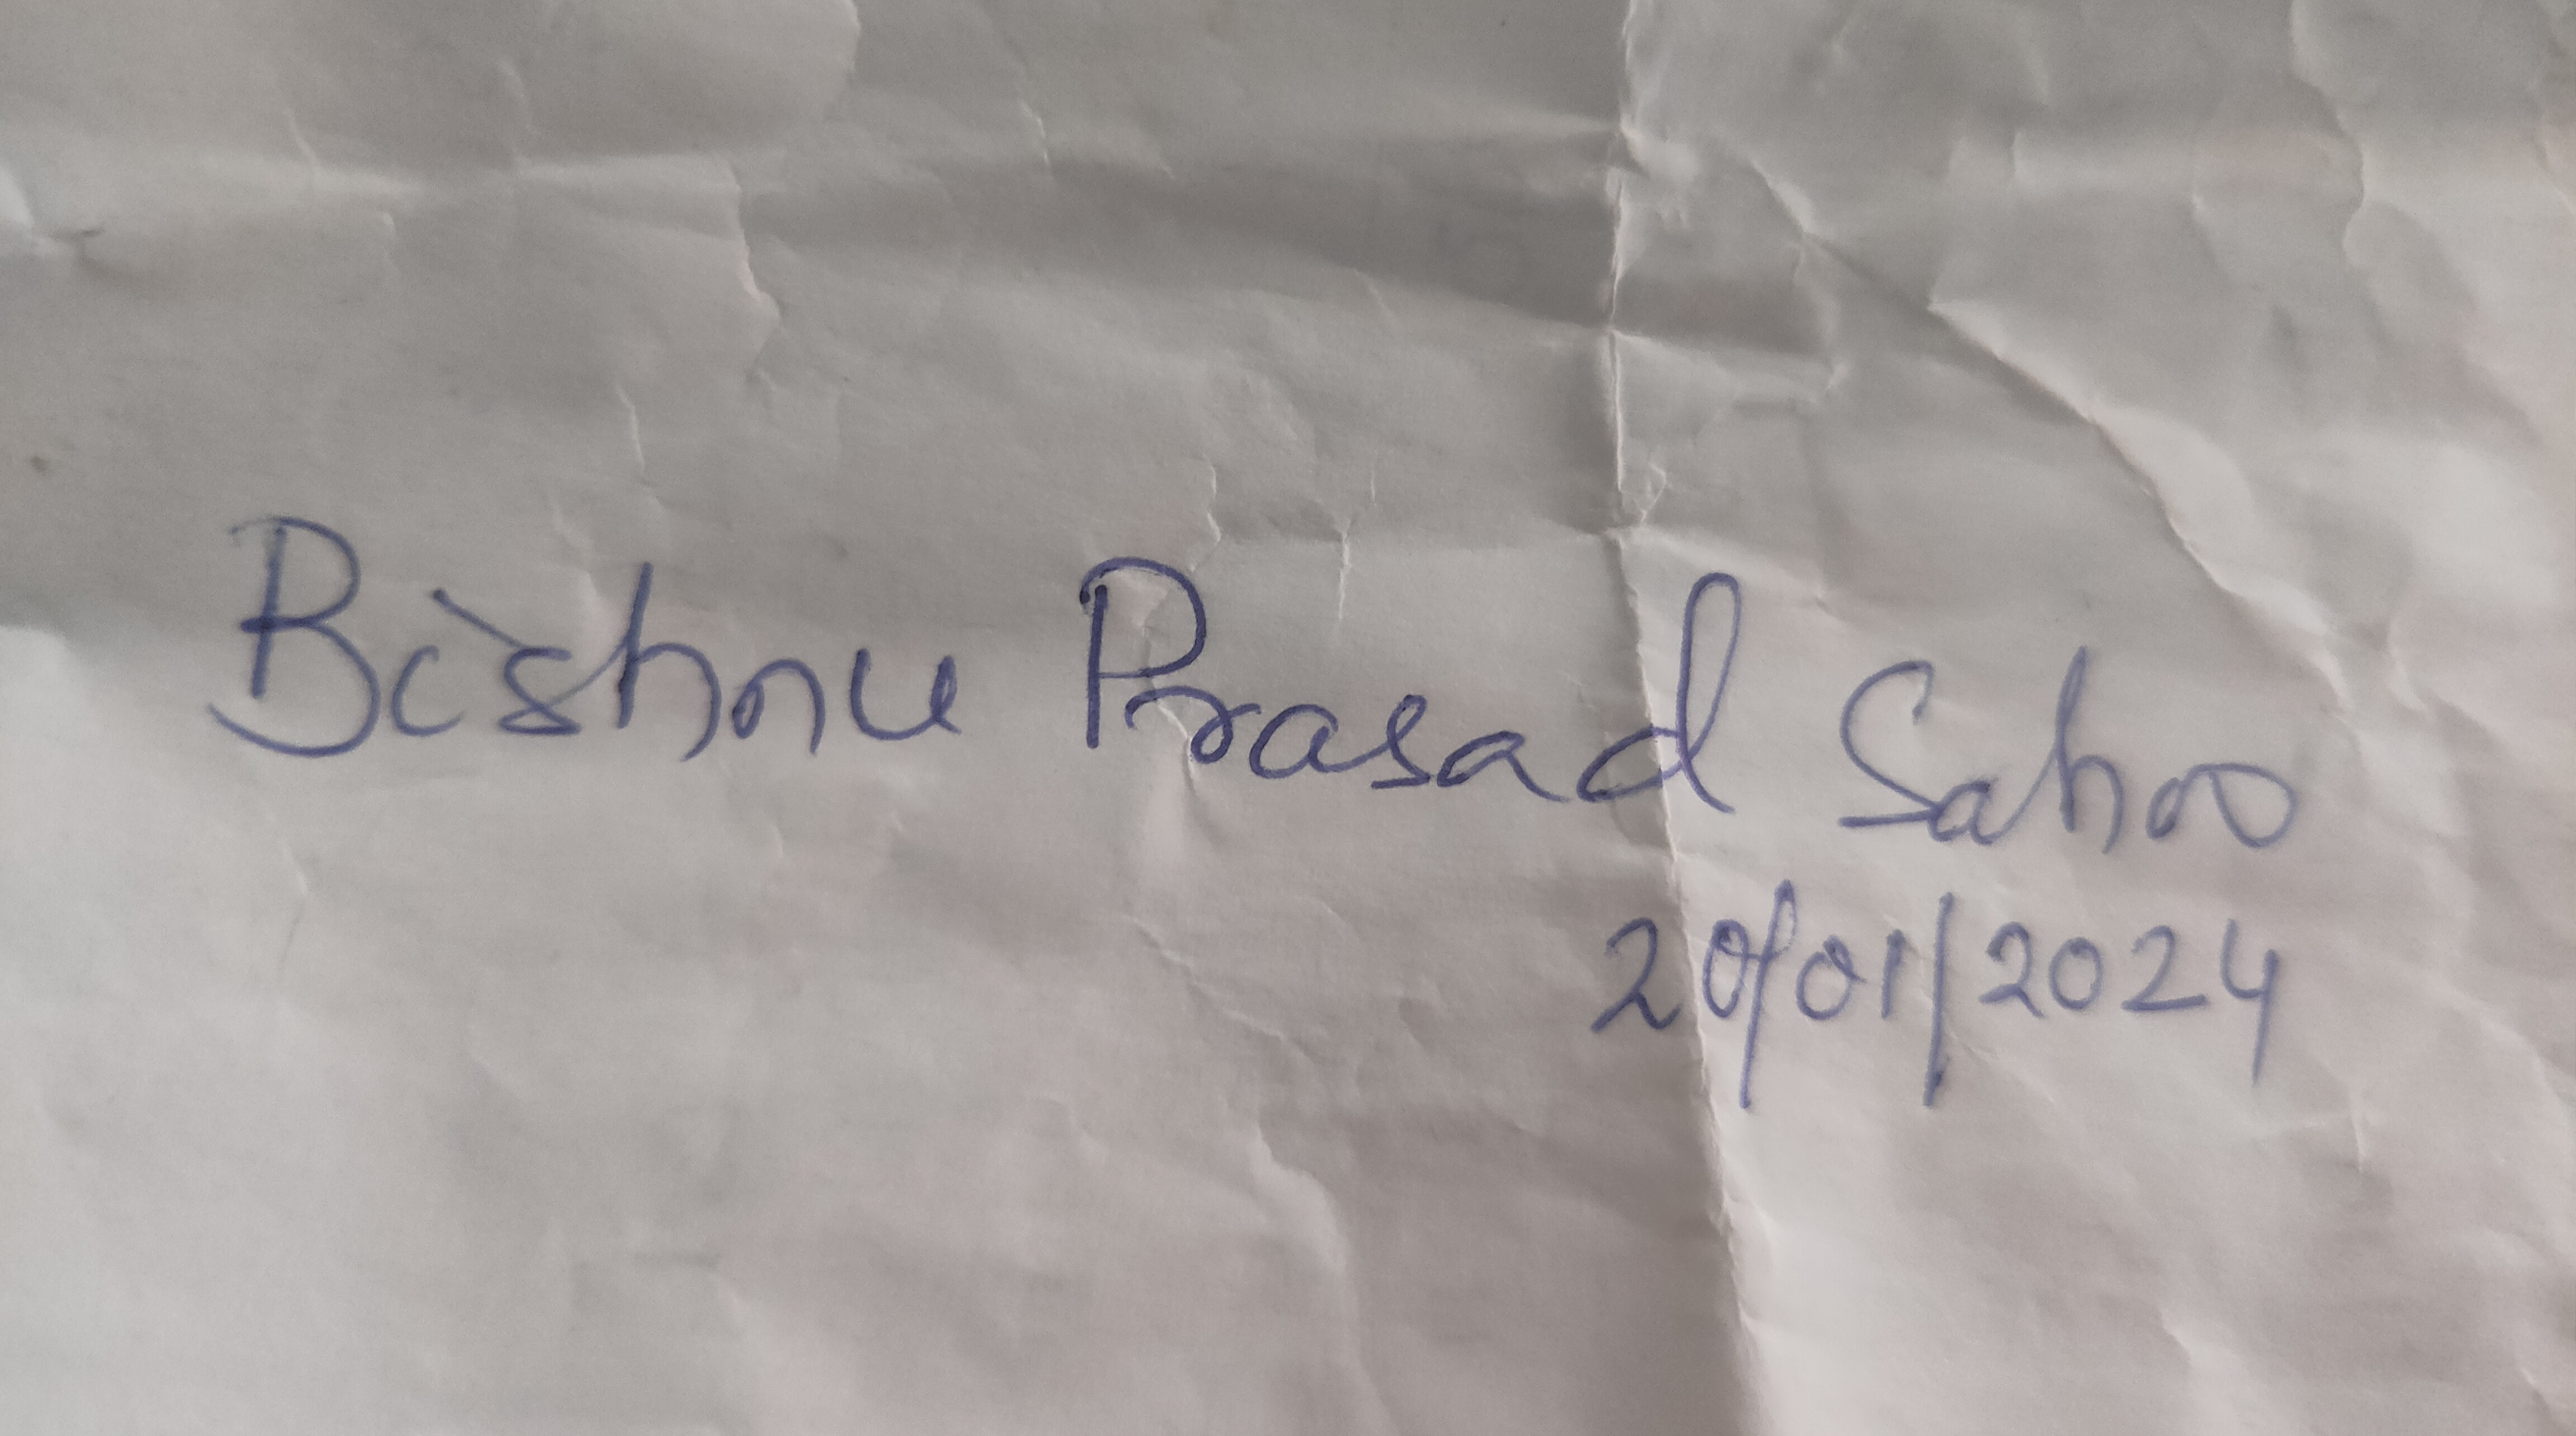 Bishnu Prasad Sahoo
20/01/2024